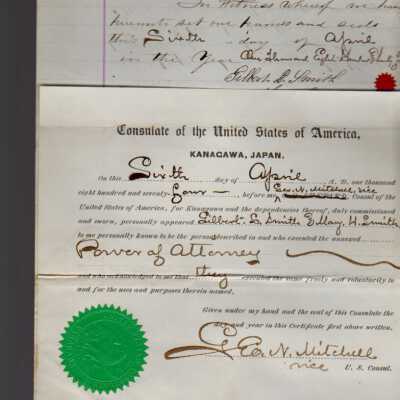 In Witness whereof we have
hereunto set our hands and seals
this Sixth day of April
in the Year One Thousand Eight Hundred
Gilbert L. Smith
Consulate of the United States of America,
KANAGAWA, JAPAN.
On this Sixth day of April A. D. one thousand
eight hundred and seventy-four before me Geo. N. Mitchell, vice Consul of the
United States of America, for Kanagawa and the dependencies thereof, duly commissioned
and sworn, personally appeared Gilbert L Smith & May H. Smith
to me personally known to be the persons described in and who executed the annexed
Power of Attorney
and who acknowledged to me that they executed the same freely and voluntarily
and for the uses and purposes therein named.
Given under my hand and the seal of this Consulate the
day and year in this Certificate first above written.
Geo. N. Mitchell
vice U. S. Consul.